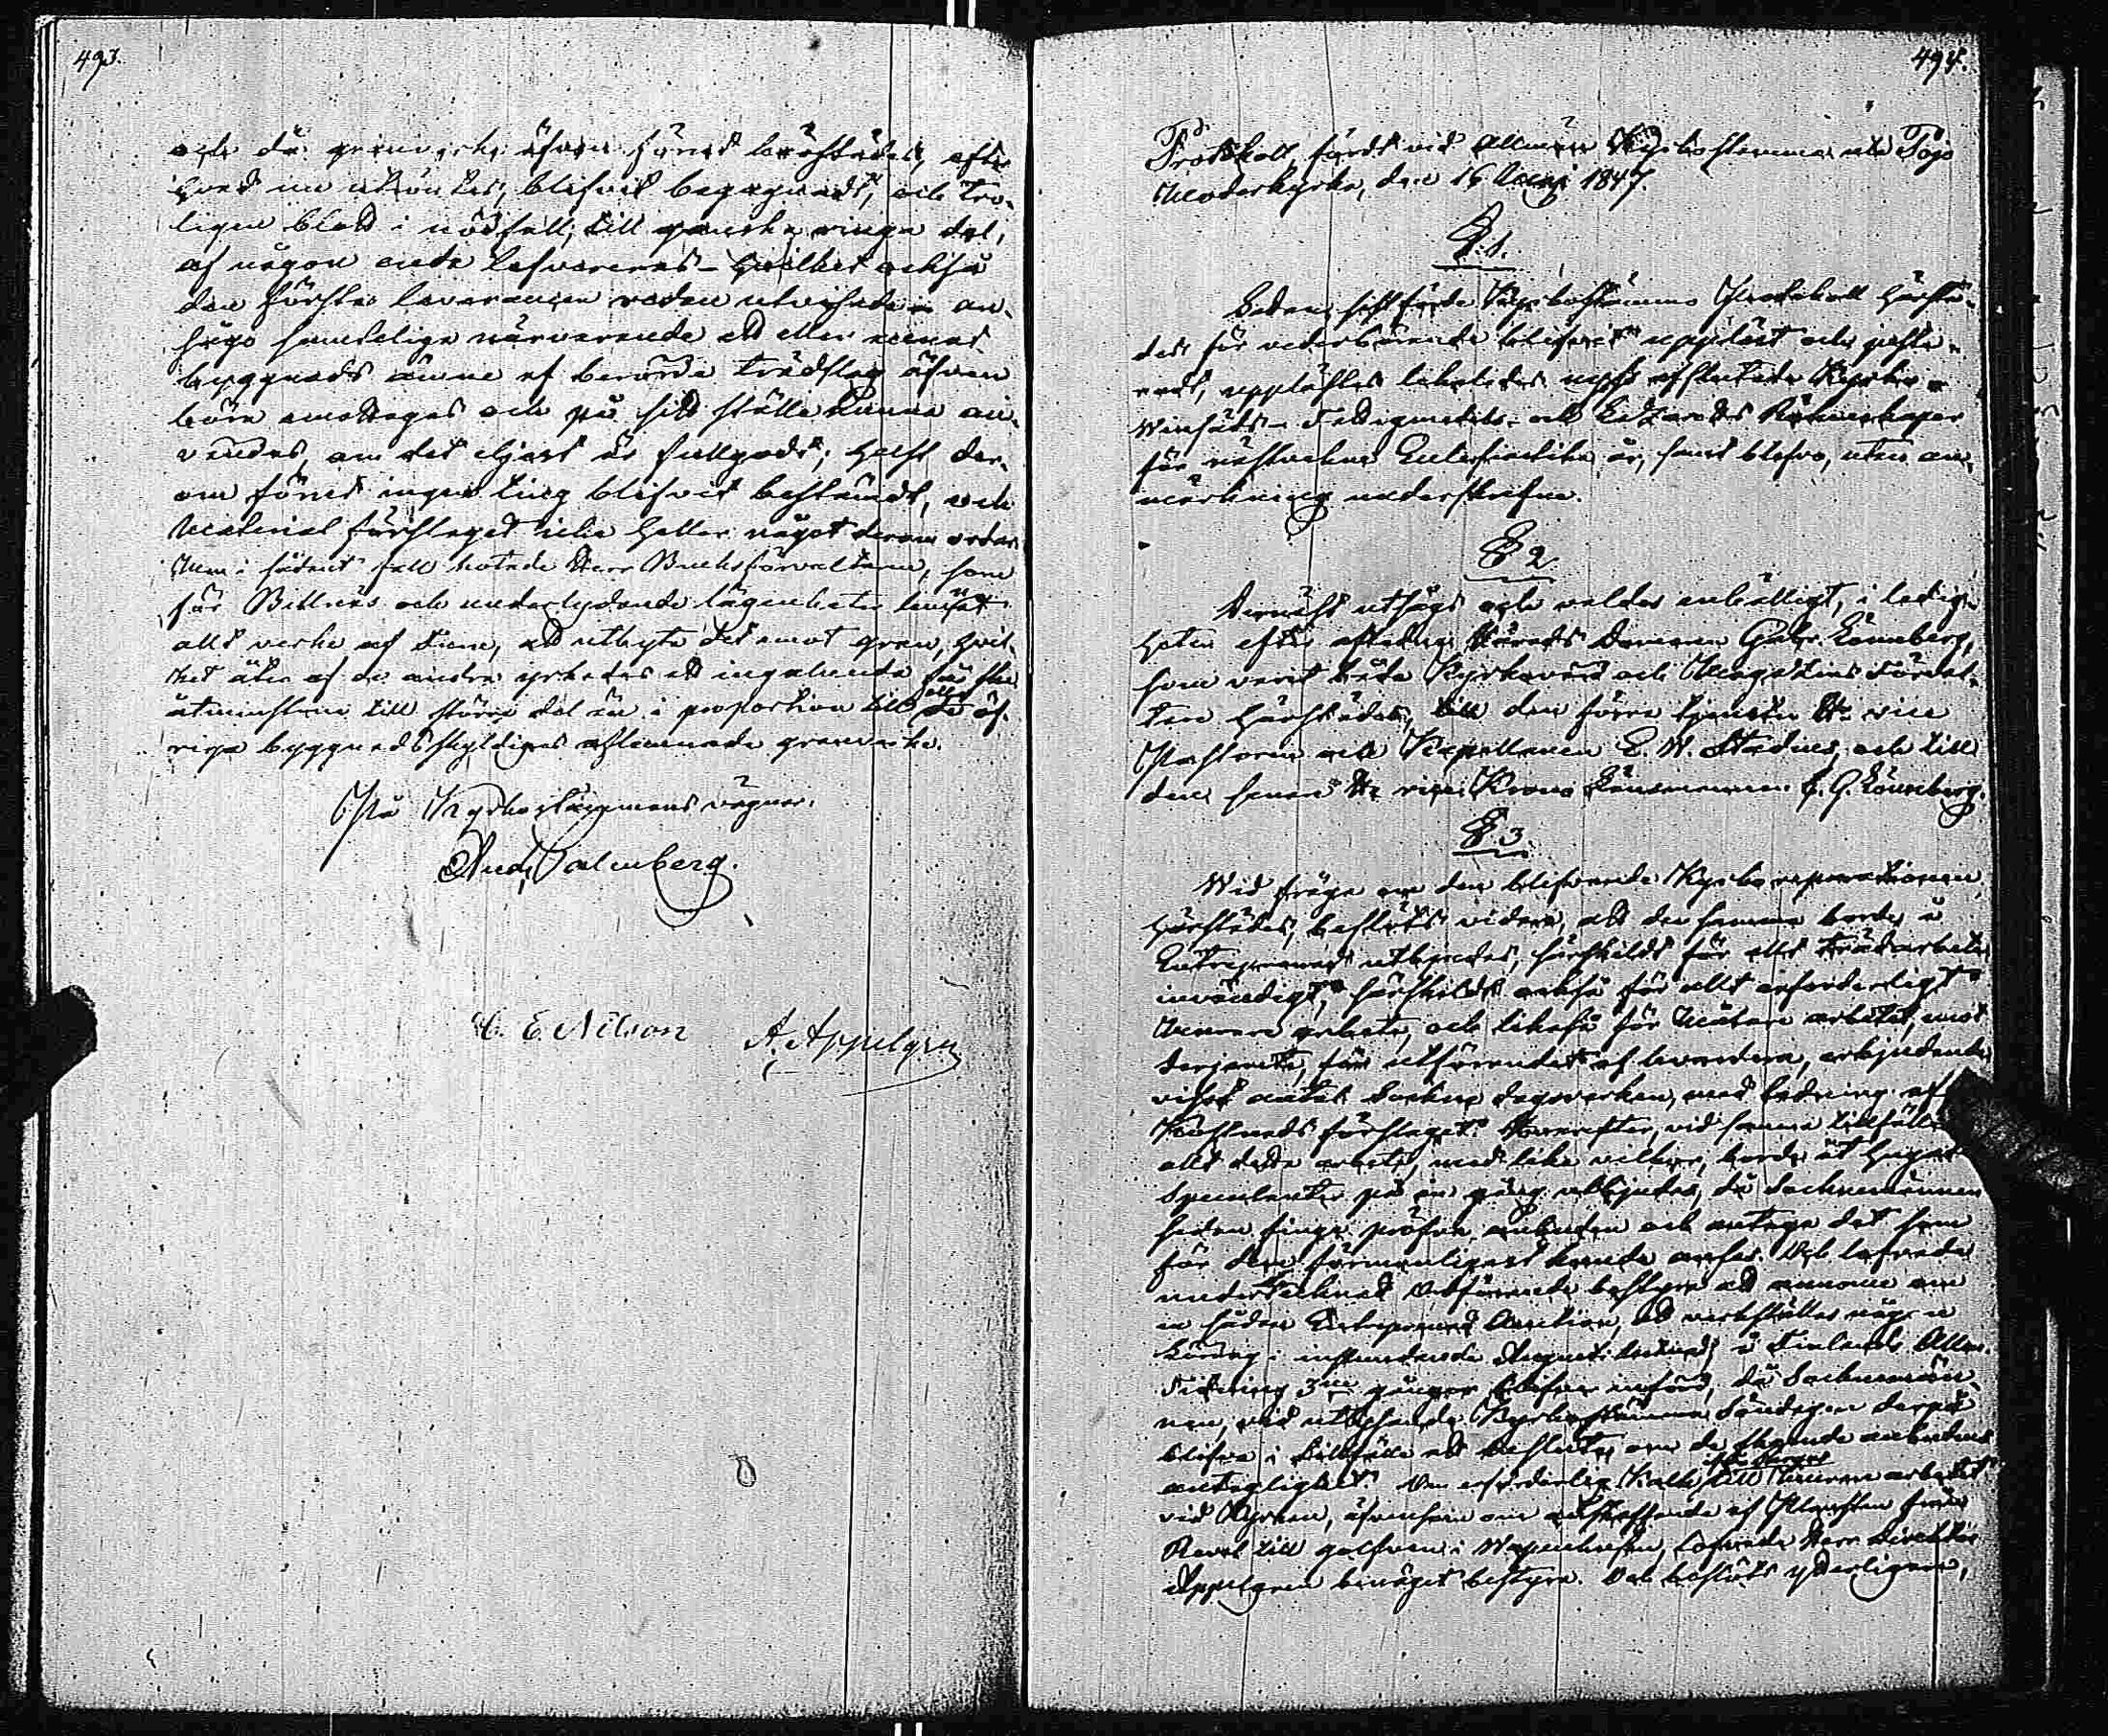 493.
och då granvirke äfven förut härstädes, efter
hvad nu utröntes, blifvit begagnadt, och tro-
ligen blott i nödfall, till ganska ringa del,
af någon enda lefvereras - hvilket också
den första leverancen redan utvisade - an-
sågo samtelige närvarande att eller
byggnads ämne af berörde trädslag äfven
böra emottagas och på sitt ställe kunna an-
vändas, om det eljest är fullgodt; helst der-
om förut ingen ting blifvit bestämdt, och
Material förslaget icke heller något derom ordar.
Men i sådant fall hotade Herr Bruksförvaltaren, som
för Billnäs och underlydande lägenheter
allt virke af furu, att utbyta det emot gran, hvil-
ket åter af de andra yrkades att ingalunda få ske
åtminstone till större del än i proportion till alla de öf-
riga byggnadsskyldiges aflemnade granvirke.
På Kyrkostämmans vägnar.
And. Palmberg.
C. E. Nilson A. Appelgren
494.
Protokoll, fördt vid allmän Kyrkostämma uti Pojo
Moderkyrka, den 16 Maji 1847.
§. 1.
Sedan sistförde Kyrkostämmo Protokoll härstä-
des för vederbörande blifvit uppläst och juste-
radt, upplästes likaledes nyss afslutade Kyrko-
Winsäds- Fattigmedels- och Räkenskaper
för nästvekne Ecclesiastike år, samt blefvo, utan an-
märkning underskrefne.
§ 2.
Dernäst utsågs och valdes enhälligt, i ledig-
heten efter aflidne Härads Domaren Gabr. Lönnberg,
som varit både Kyrkovärd och Magasins Förval-
tare härstädes, till den förra tjensten Hr vice
Pastoren och Kapellanen E. W. Stadius, och till
den senare Hr vice Krono Länsmannen C. G. Lönnberg.
§ 3.
Wid fråga om den blifvande Kyrko reparationen
härstädes, beslöts vidare, att den samma borde å
Entreprenad utbjudas, särskildt för allt trädarbete
invändigt, särskildt också för allt erforderligt
Murare arbete, och likaså för Målare arbetet, emot
derjemte, för utförandet af hvardera, erbjudande
visst antal Sockne dagsverken, med ledning af
Kostnads förslaget. Hvarefter, vid samma tillfälle
allt detta arbete, med lika vilkor, borde åt hugade
Spekulanter på en gång utbjudas, då Socknemännen
sedan finge pröfva anbuden och antaga det som
för dem förmånligast kunde anses. Och lofvade
undertecknad Ordförande bestyra att annonce om
en sådan Entreprenad Auction, att verkställas någon
Lördag i instundande Augusti Månad, i Finlands Allm.
Tidning 3ne gånger blifver införd, då Sockenmän-
nen, vid utlysande Kyrkostämma Söndagen derpå
blifva i tillfälle att besluta om de skeende anbudens
antaglighet. Om erforderlig Kalk till Murare arbetet
vid Kyrkan, äfvensom om anskaffande af från
Reval till golfven i Wapenhusen, lofvade Herr Direktör
Appelgren benäget bestyra. Och beslöts ytterligare,